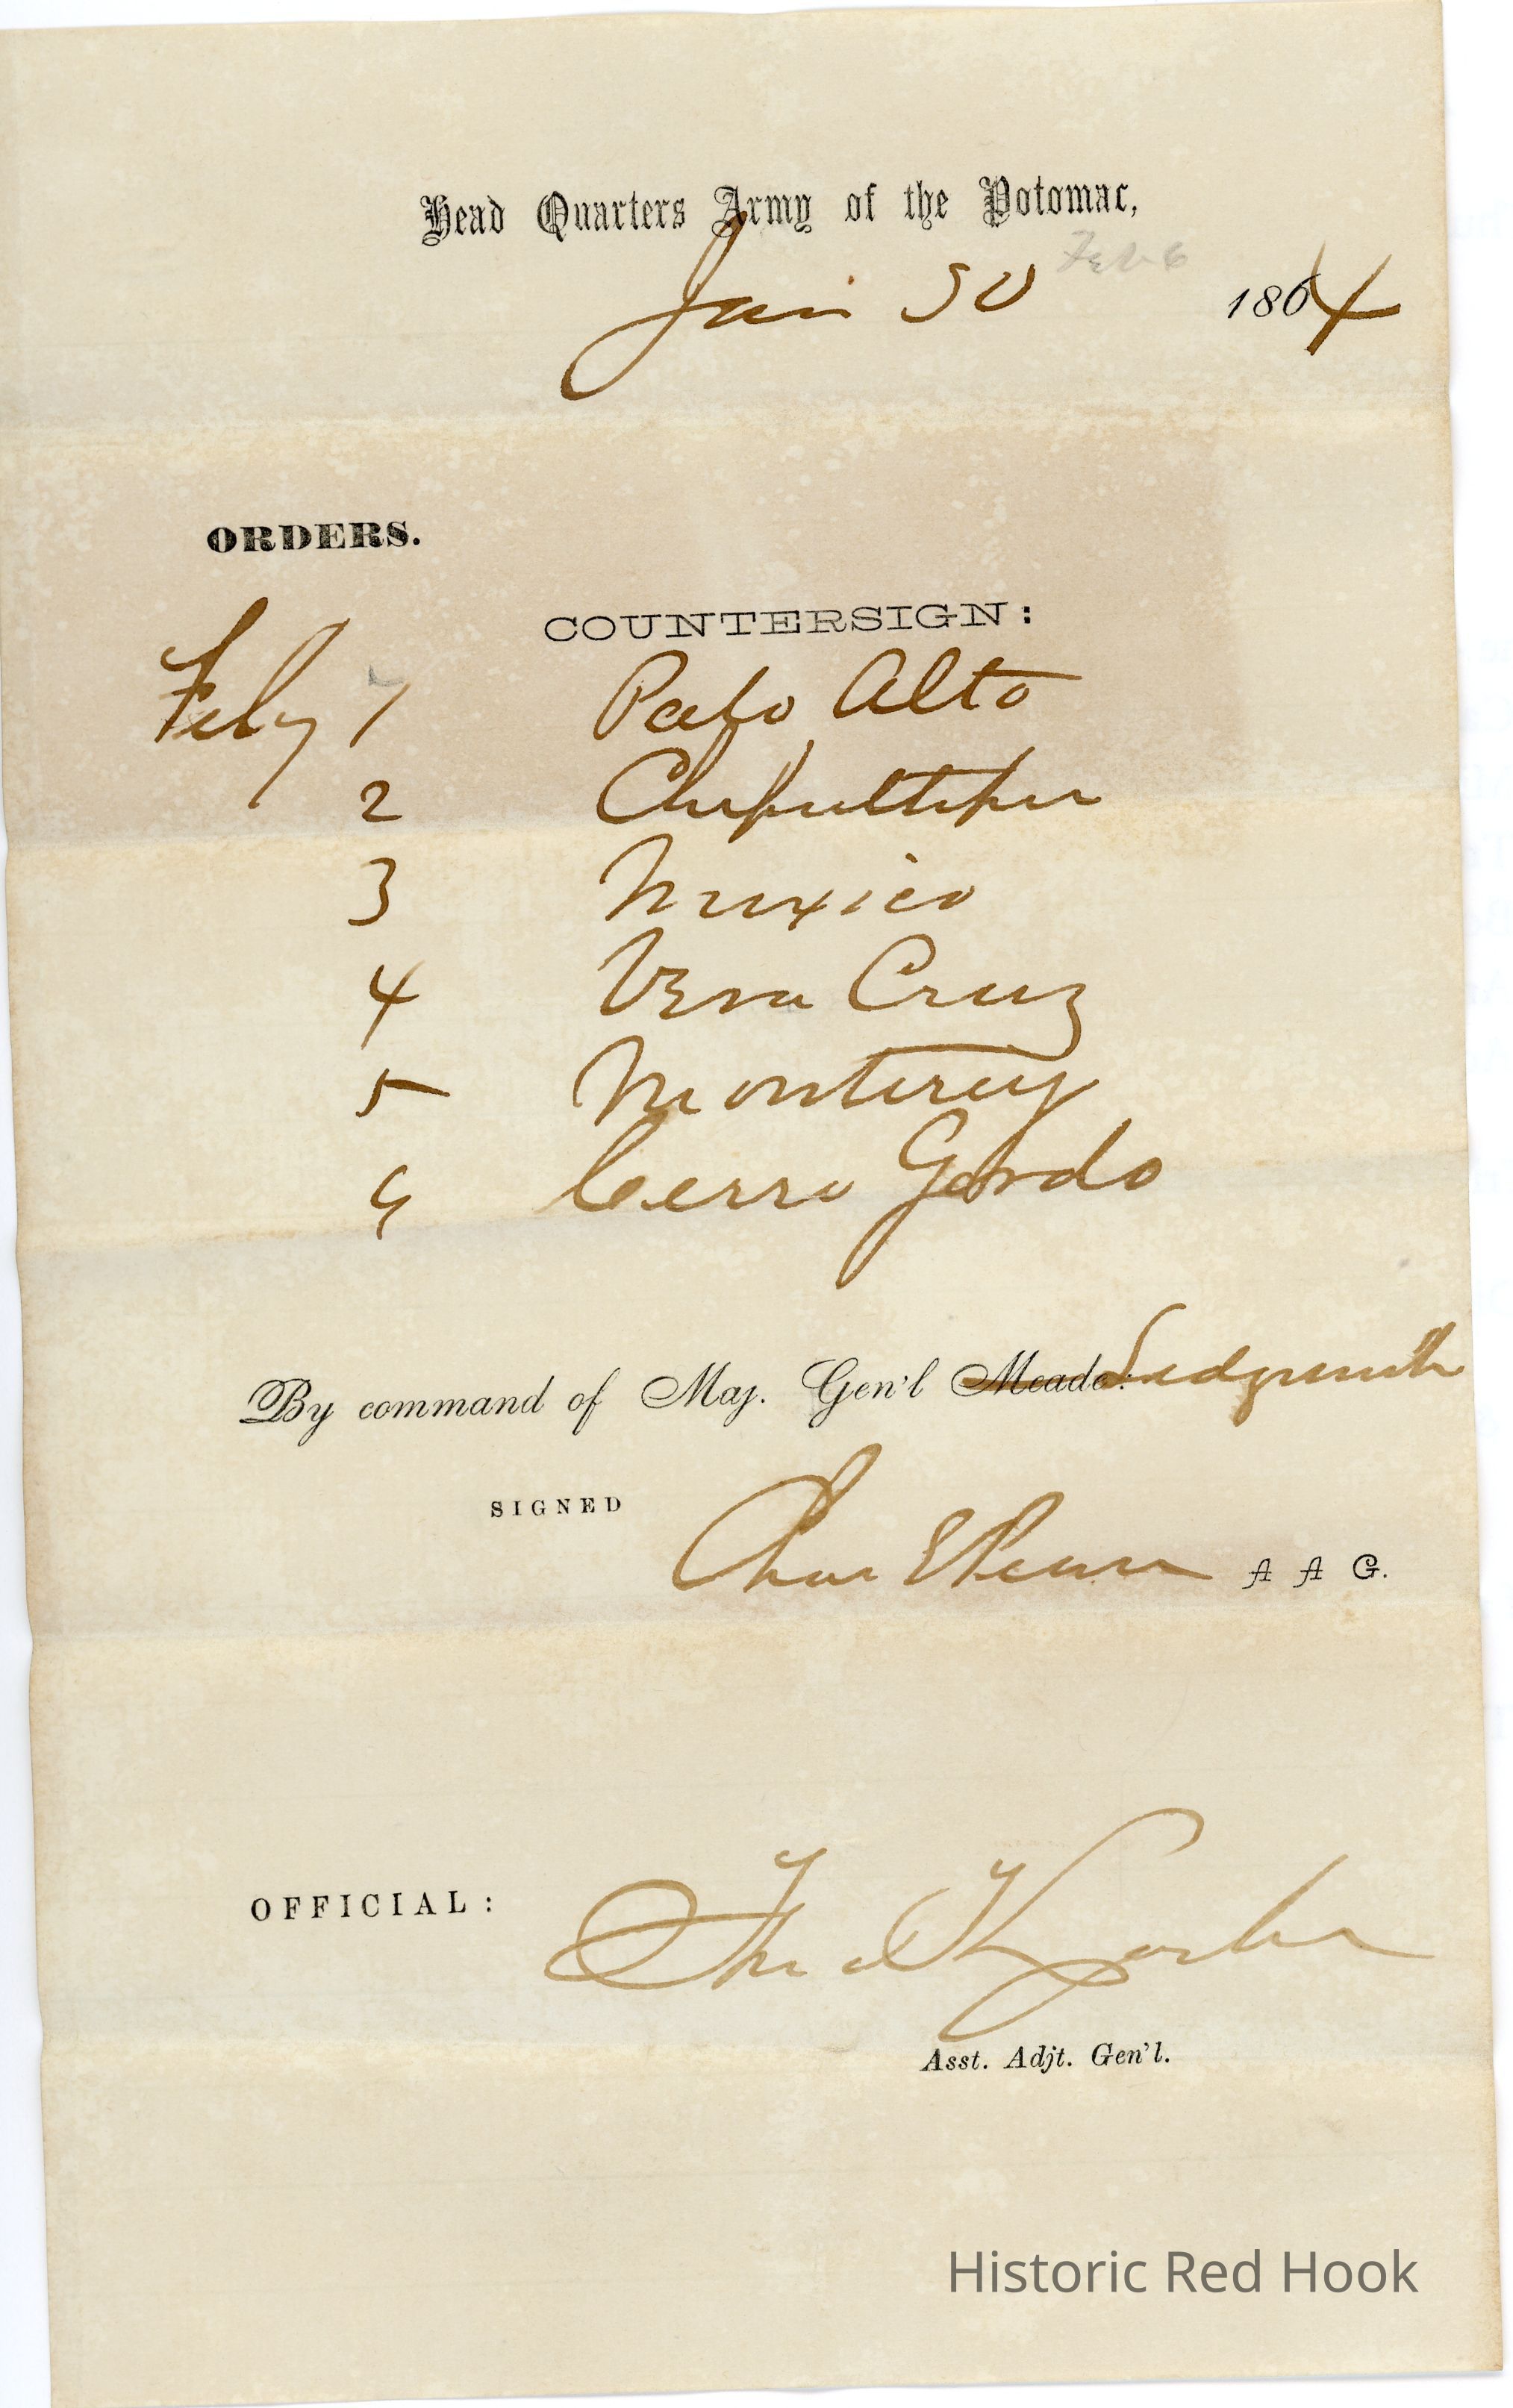 Head Quarters Army of the Potomac,
Jan 30 Feb 6 1864
ORDERS.
COUNTERSIGN:
Feby 1 Palo Alto
2 Chepultepec
3 Mexico
4 Vera Cruz
5 Monterey
6 Cerro Gordo
By command of Maj. Gen'l Meade: Sedgwick
SIGNED Chas E Pease A A G.
OFFICIAL:
Asst. Adjt. Gen'l.
Historic Red Hook